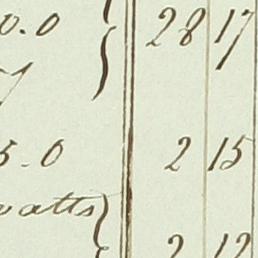 0.0 28 17
5.0 2 15
watts
2 12